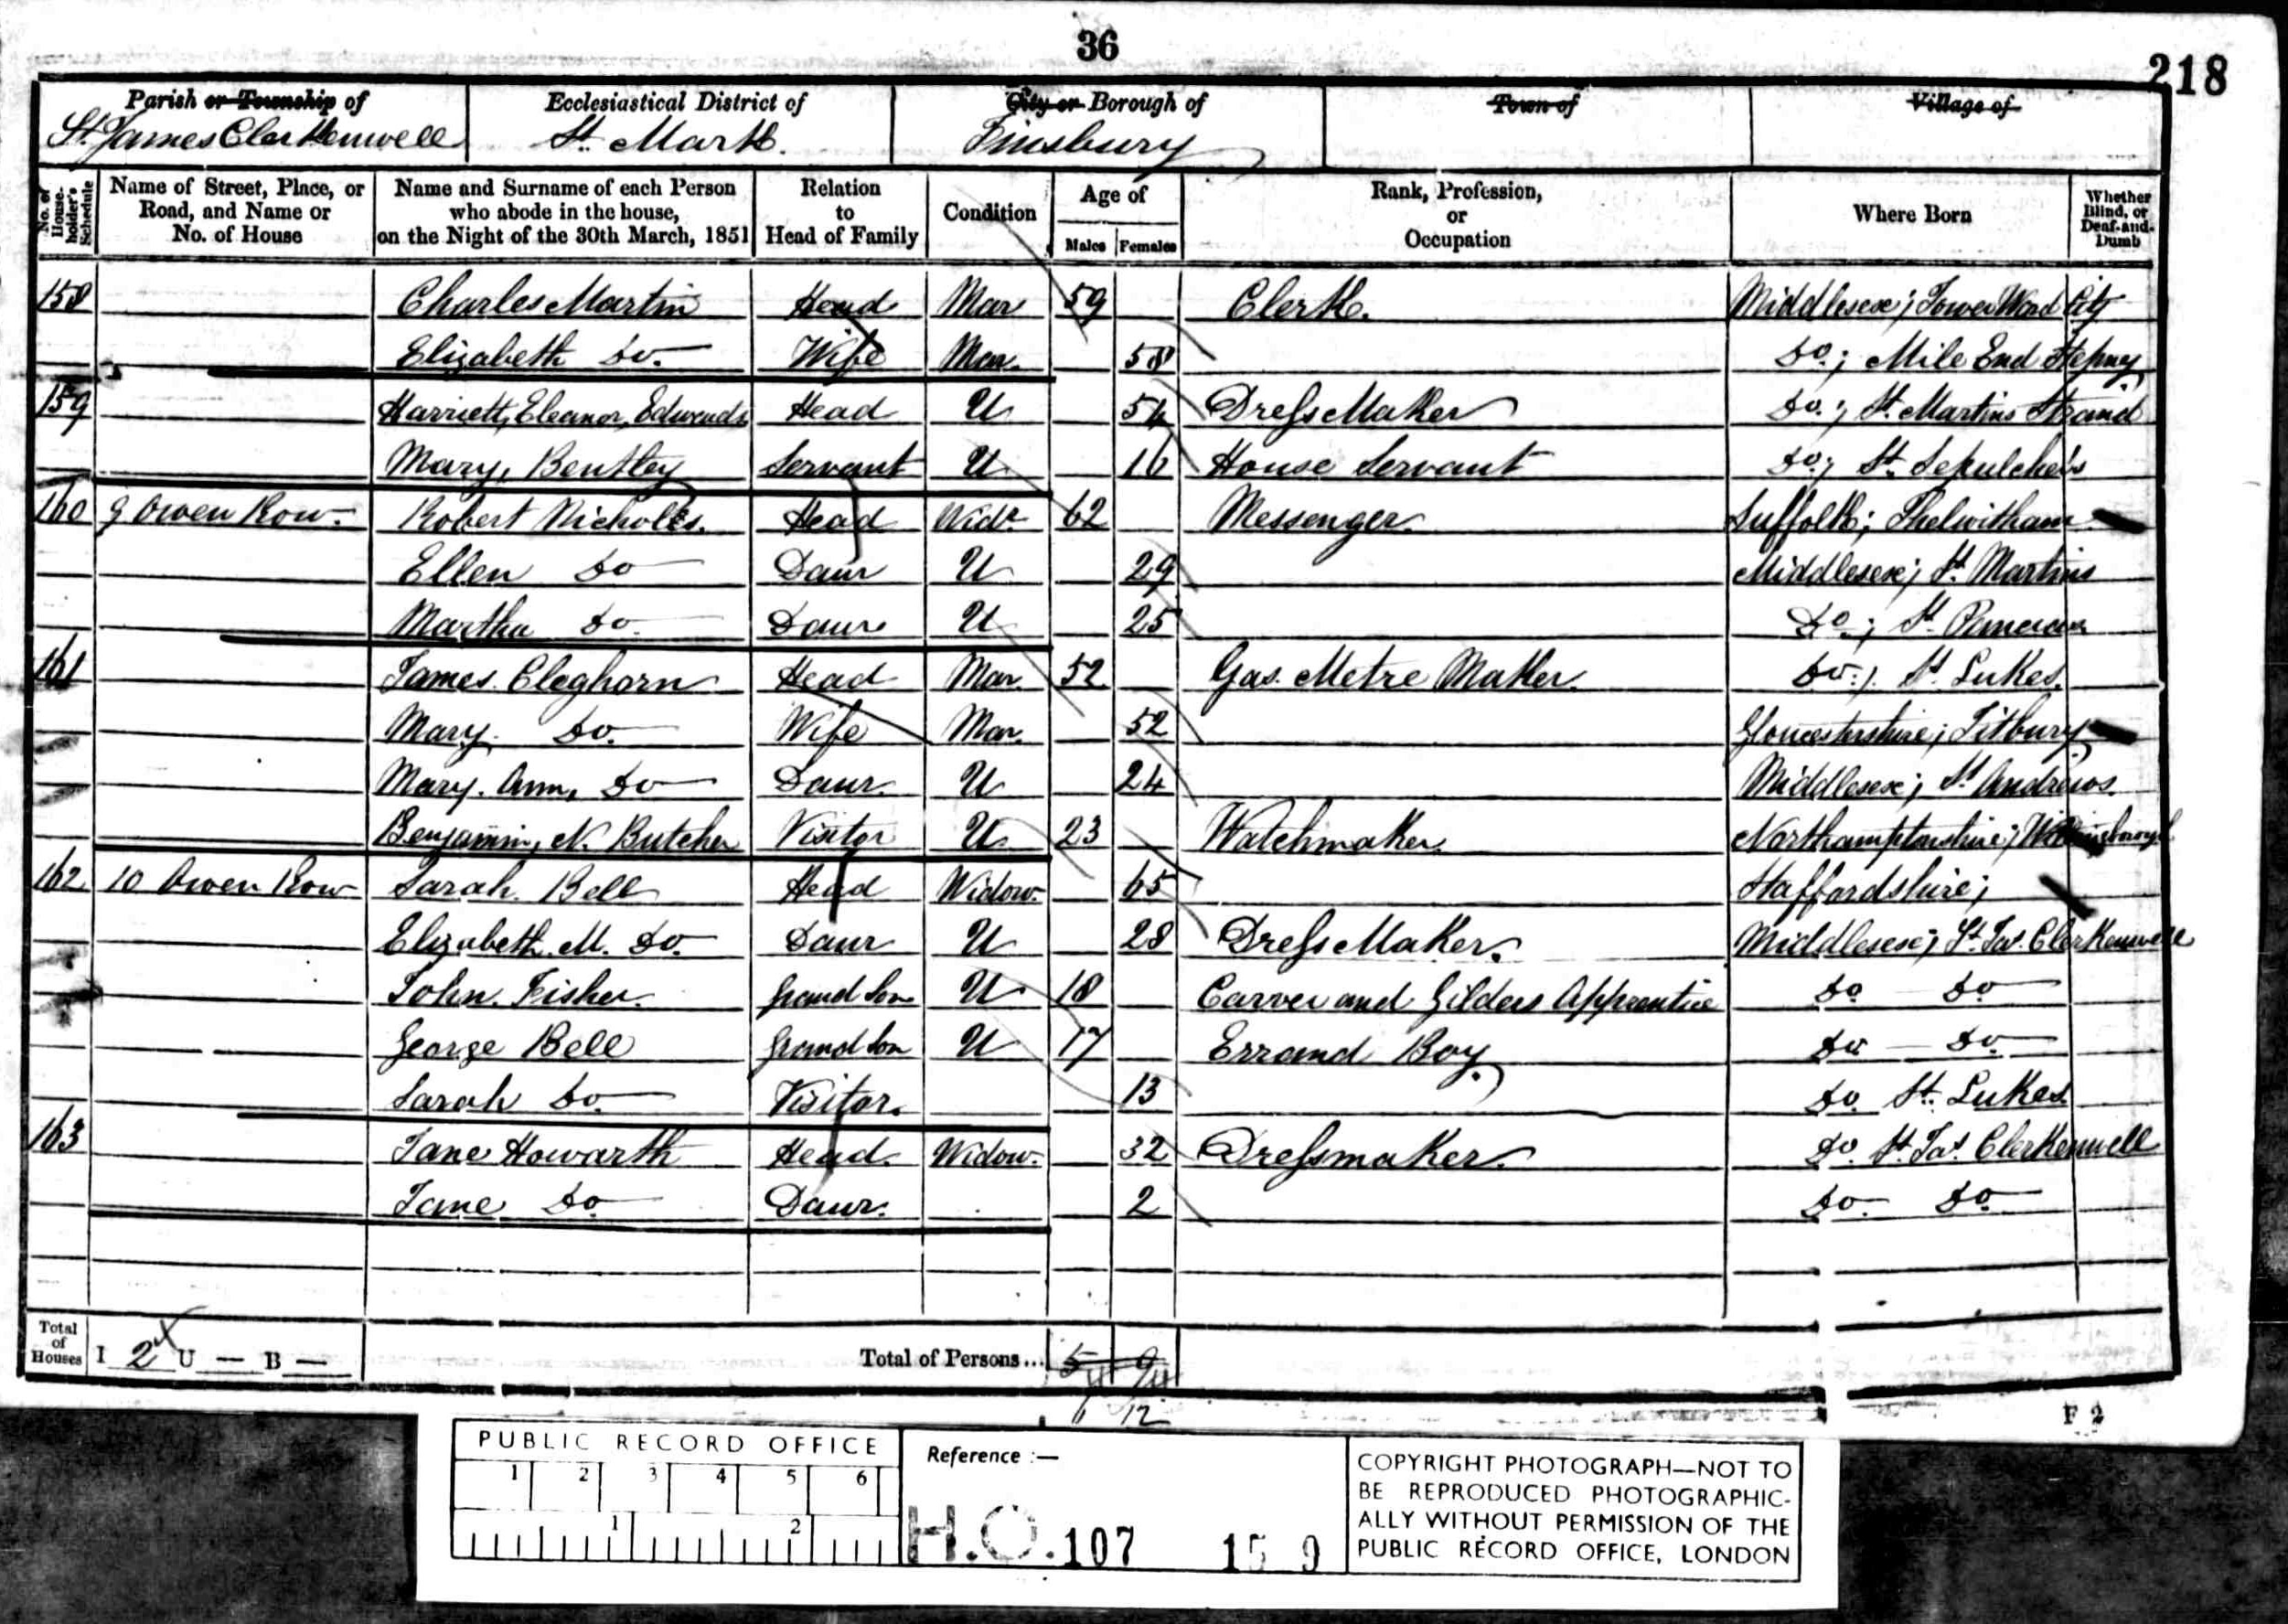 36
218
Parish or Township of
St. James Clerkenwell
Ecclesiastical District of
St. Mark.
City or Borough of
Finsbury
Town of
Village of
No. of House-holder's Schedule
Name of Street, Place, or Road, and Name or No. of House
Name and Surname of each Person who abode in the house, on the Night of the 30th March, 1851
Relation to Head of Family
Condition
Age of
Males Females
Rank, Profession, or Occupation
Where Born
Whether Blind, or Deaf-and-Dumb
158 Charles Martin Head Mar 59 Clerk. Middlesex; Tower Ward City
Elizabeth Do. Wife Mar. 58 Do.; Mile End Stepney
159 Harriett, Eleanor, Edwards Head U 54 DressMaker Do.; St. Martins Strand
Mary, Bentley Servant U 16 House Servant Do; St. Sepulchers
160 9 Owen Row. Robert Nicholls. Head Widr. 62 Messenger. Suffolk; Thelwitham
Ellen Do Daur U 29 Middlesex; St. Martins
Martha Do Daur U 25 Do; St. Pancras
161 James Cleghorn Head Mar. 52 Gas Metre Maker. Do.; St. Lukes.
Mary. Do. Wife Mar. 52 Gloucestershire; Titbury
Mary. Ann, Do Daur. U 24 Middlesex; St. Andrews.
Benjamin, N. Butcher Visitor U 23 Watchmaker. Northamptonshire;
162 10 Owen Row Sarah. Bell Head Widow. 65 Staffordshire;
Elizabeth. M. Do. Daur U 28 DressMaker. Middlesex; St. Jas. Clerkenwell
John. Fisher. Grand Son U 18 Carver and Gilders Apprentice Do Do
George Bell Grand Son U 17 Errand Boy. Do Do
Sarah Do. Visitor. 13 Do. St. Lukes.
163 Jane Howarth Head. Widow. 32 Dressmaker. Do. St. Jas. Clerkenwell
Jane Do Daur. 2 Do. Do.
Total of Houses I 2 U — B —
Total of Persons... 5 9
6 12
F 2
PUBLIC RECORD OFFICE
1 2 3 4 5 6
1 2
Reference :—
H.O. 107 15 9
COPYRIGHT PHOTOGRAPH—NOT TO
BE REPRODUCED PHOTOGRAPHIC-
ALLY WITHOUT PERMISSION OF THE
PUBLIC RECORD OFFICE, LONDON